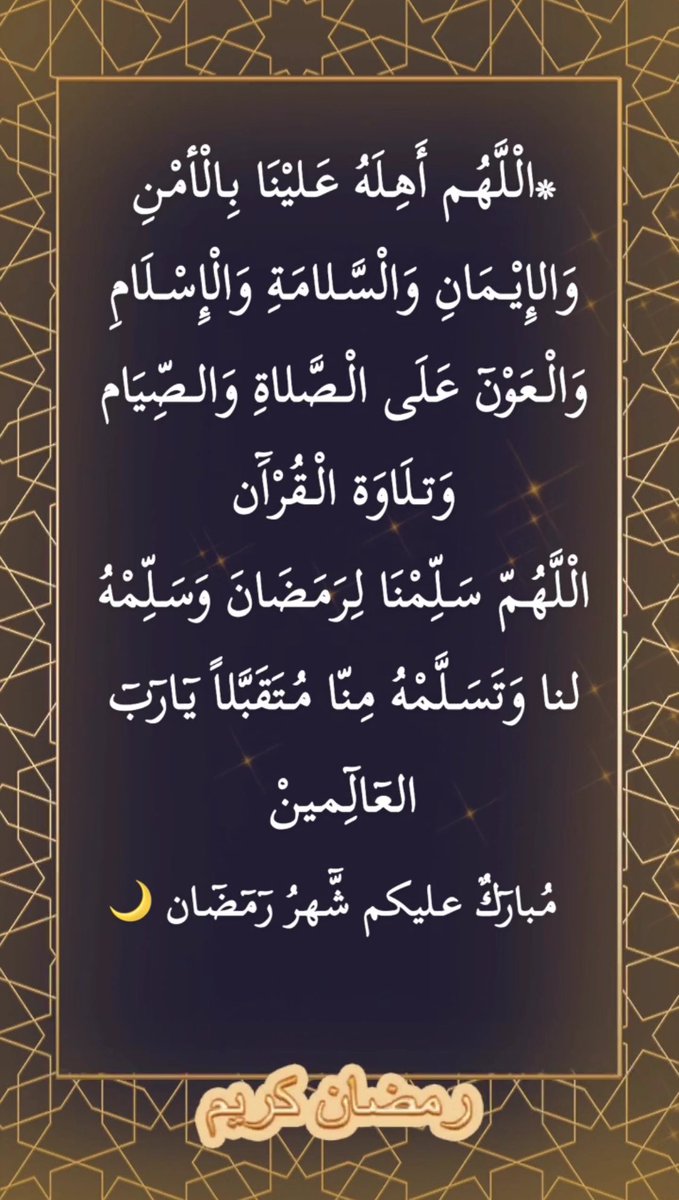 *الْلَّهُم أَهِلَهُ عَليْنَا بِالْأمْنِ
وَالإِيْمَانِ وَالْسَّلامَةِ وَالْإِسْلَامِ
وَالْعَوْنَ عَلَى الْصَّلاةِ وَالصِّيَام
وَتلَاوَة الْقُرْآَن
الْلَّهُمّ سَلِّمْنَا لِرَمَضَانَ وَسَلِّمْهُ
لنا وَتَسَلَّمْهُ مِنّا مُتَقَبَّلاً يَارَبَ
العَالَِمينْ
مُبارَكٌ عليكم شَّهرُ رَمَضَان 🌙
رمضان كريم